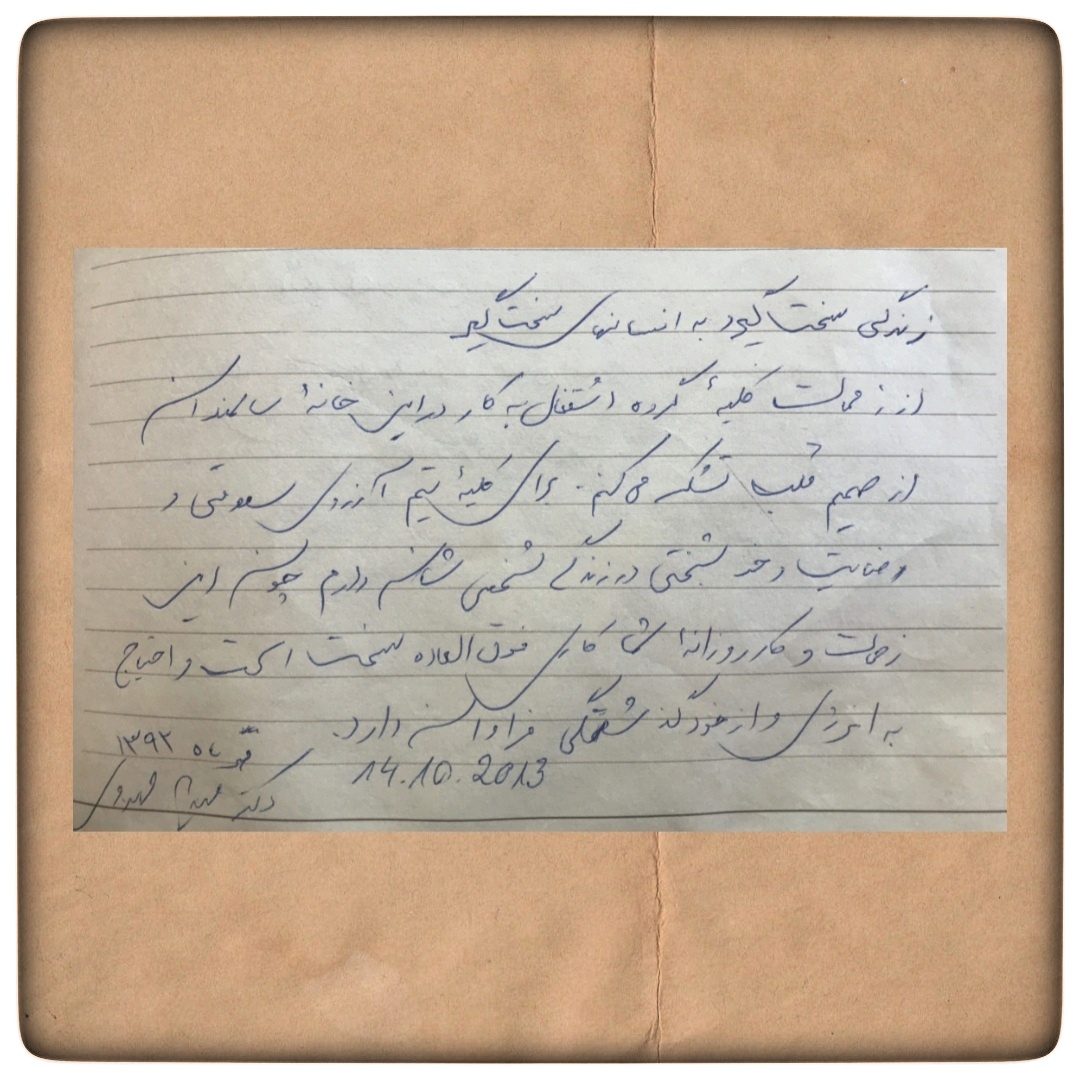 زندگی سخت گیرد به انسانهای سخت گیر
از زحمات کلیهٔ گروه اشتغال به کار در این خانهٔ سالمندان
از صمیم قلب تشکر می کنم. برای کلیهٔ تیم آرزوی سعادتی و
رضایت و خوشبختی در زندگی شخصی شان دارم چون این
زحمات و کار روزانهٔ شما کاری فوق العاده سخت است و احتیاج
به انرژی و از خود گذشتگی فراوان دارد.
مهر ماه ۱۳۹۲
14.10.2013
دکتر